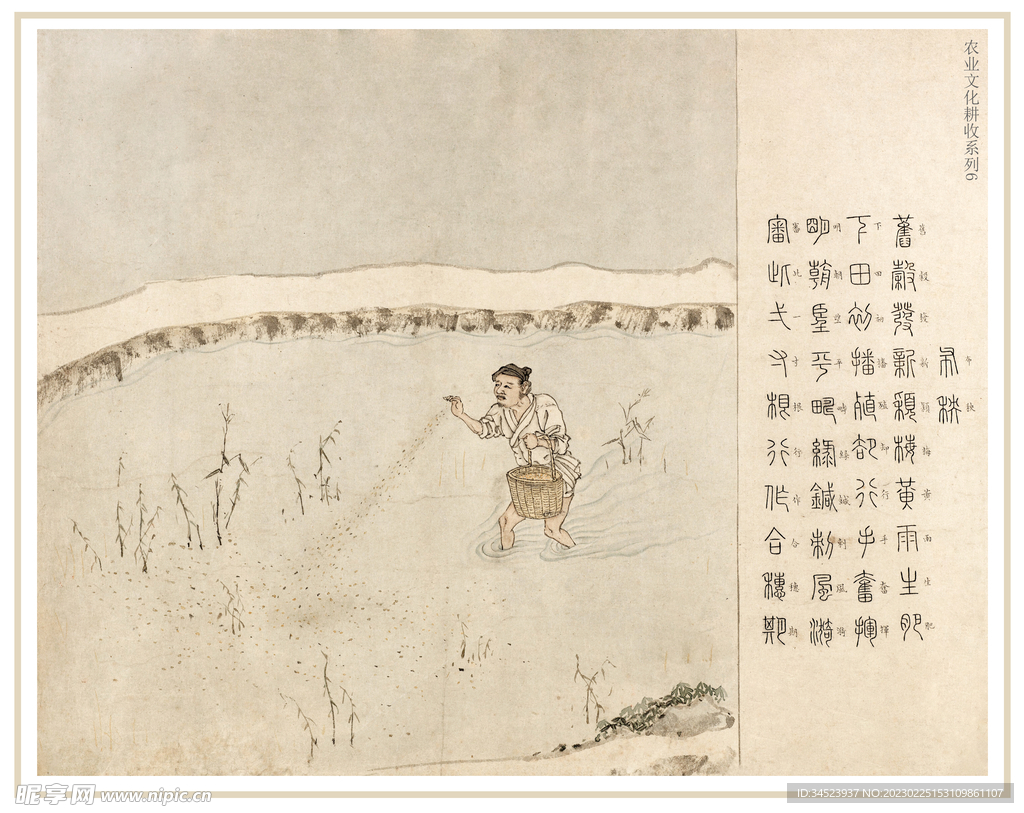 农业文化耕收系列6
布秧
舊穀發新穎梅黃雨生肥
下田初播殖卻行手奮揮
明朝望平疇綠鍼刺風漪
審此弌寸根行作合穗期
昵享网 www.nipic.cn
ID:34523937 NO:20230225153109861107